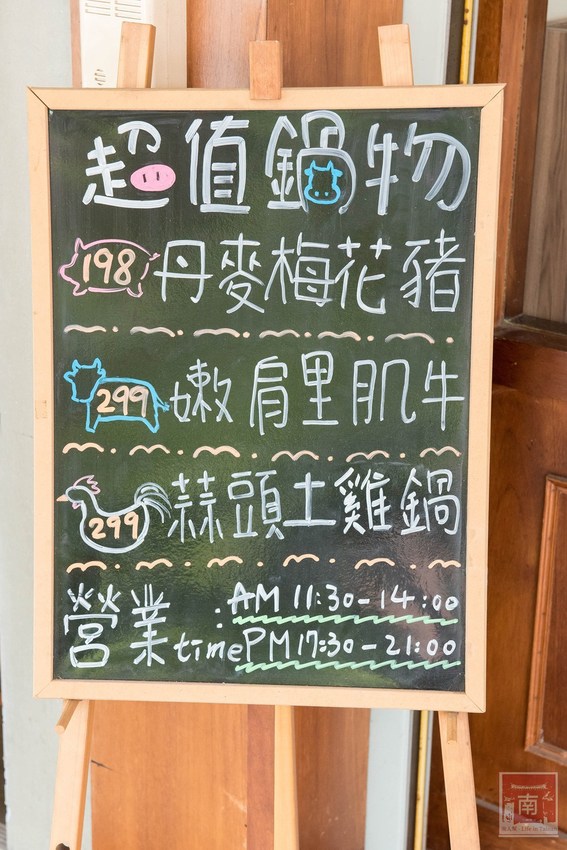 超值鍋物
198 丹麥梅花豬
299 嫩肩里肌牛
299 蒜頭土雞鍋
營業time: AM 11:30-14:00
PM 17:30-21:00
南